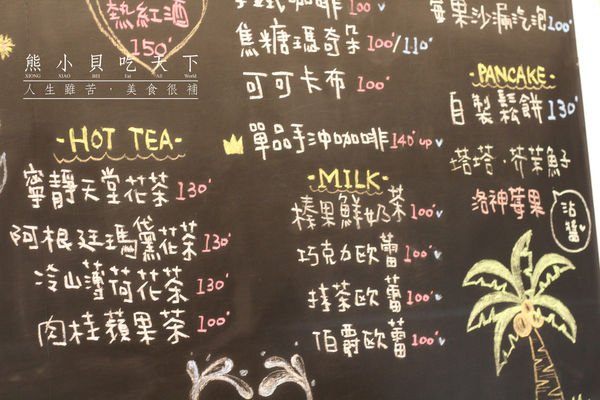 熱紅酒
150
熊小貝吃天下
XIONG XIAO BEI Eat All World
人生雖苦,美食很補
-HOT TEA-
寧靜天堂花茶 130
阿根廷瑪黛花茶 130
冷山薄荷花茶 130
肉桂蘋果茶 100
咖啡 100
焦糖瑪奇朵 100/110
可可卡布 100
單品手沖咖啡 140 up
-MILK-
榛果鮮奶茶 100
巧克力歐蕾 100
抹茶歐蕾 100
伯爵歐蕾 100
莓果沙漏汽泡 100
-PANCAKE-
自製鬆餅 130
塔塔·芥茉魚子
洛神莓果
沾醬